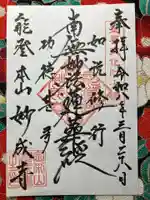 奉拝 令和六年三月二八日
如説修行
南無妙法蓮華経
功徳甚多
能登本山 妙成寺